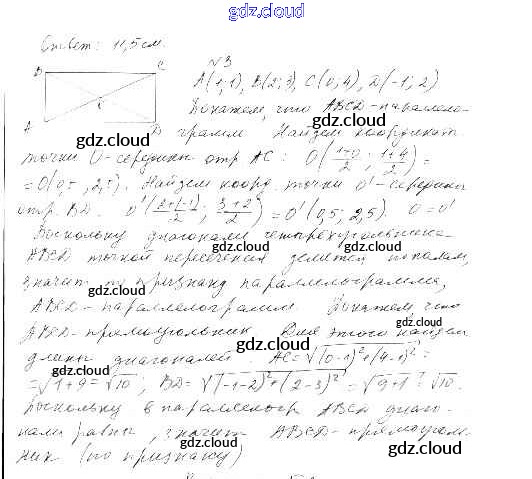 gdz.cloud
Ответ: 11,5 см.
N3
B C A(1;1), B(2;3), C(0;4), D(-1;2)
Докажем, что ABCD - параллело-
A D грамм Найдем координат.
gdz.cloud
точки O - середины отр AC: O(1+0/2; 1+4/2) =
gdz.cloud gdz.cloud
= O(0,5; 2,5). Найдем коорд. точки O' - середины
отр. BD. O'(2+(-1)/2; 3+2/2) = O'(0,5; 2,5). O = O'
gdz.cloud
Поскольку диагонали четырехугольника
gdz.cloud gdz.cloud
ABCD точкой пересечения делятся пополам,
значит по признаку параллелограмма,
gdz.cloud
ABCD - параллелограмм Докажем что
gdz.cloud
ABCD - прямоугольник Для этого найдем
gdz.cloud
длины диагоналей: AC = √(0-1)²+(4-1)² =
= √1+9 = √10; BD = √(-1-2)²+(2-3)² = √9+1 = √10.
gdz.cloud gdz.cloud
Поскольку в параллелогр ABCD диаго-
нали равны, значит ABCD - прямоугол
gdz.cloud
ник (по признаку)
gdz.cloud